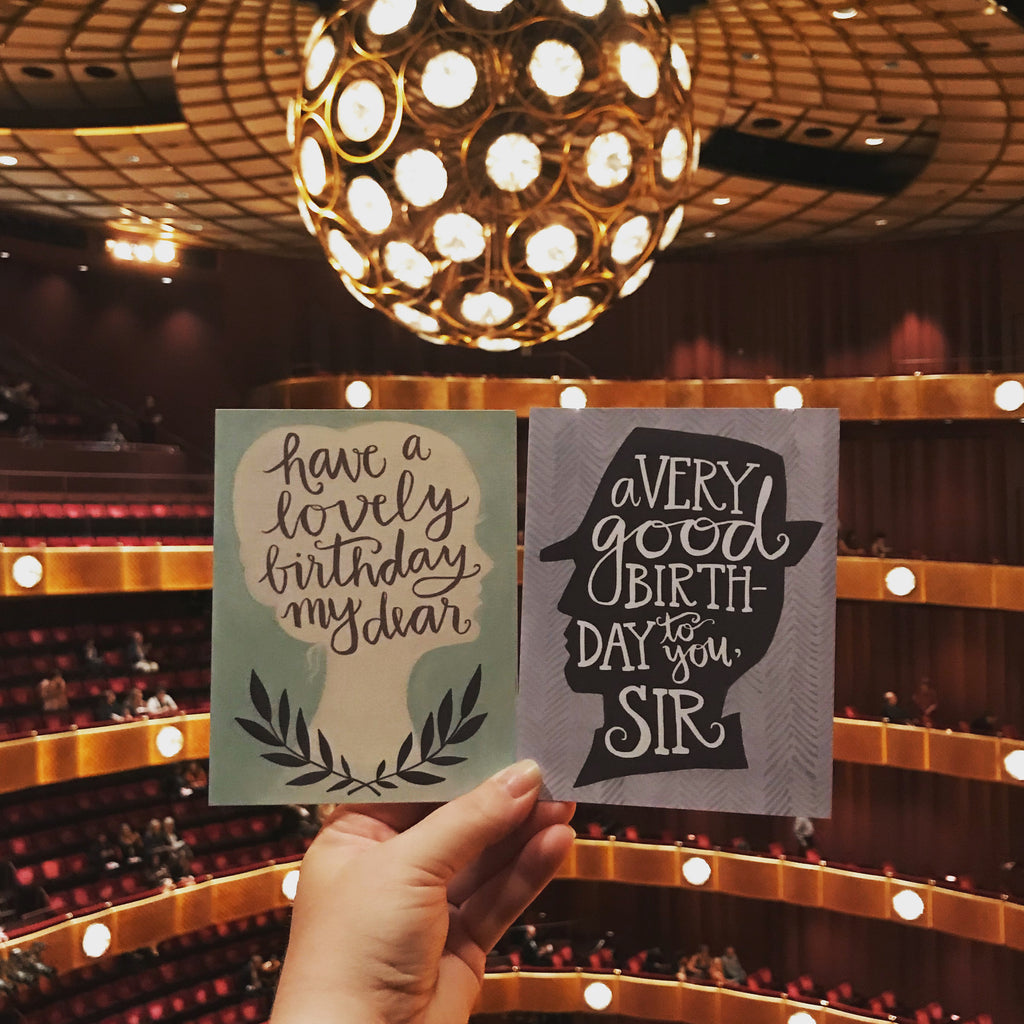 have a
lovely
birthday
my dear
a VERY
good
BIRTH-
DAY to
you,
SIR